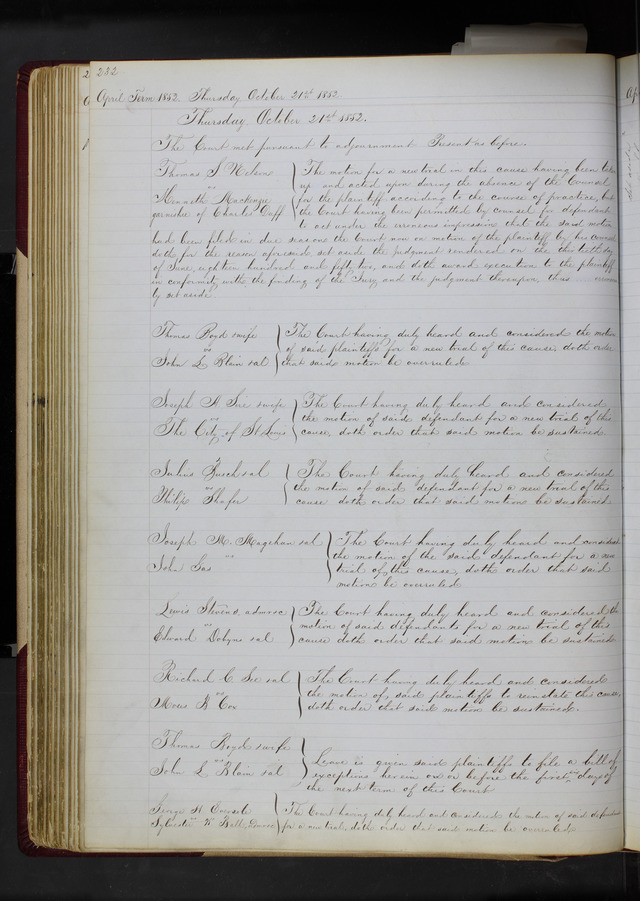 232
April Term 1852. Thursday October 21st 1852.
Thursday, October 21st 1852.
The Court met pursuant to adjournment. Present as before.
Thomas S Nelson
vs
Kenneth Mackenzie
garnishee of Charles Cuff
The motion for a new trial in this cause having been taken
up and acted upon during the absence of the Counsel
for the plaintiff according to the course of practice, but
the Court having been permitted by counsel for defendant
to act under the erroneous impression that the said motion
had been filed in due season the Court now on motion of the plaintiff by his counsel
doth for the reason aforesaid set aside the judgment rendered on the day
of June, eighteen hundred and fifty two, and doth award execution to the plaintiff
in conformity with the finding of the Jury and the judgment thereupon, thus
ly set aside.
Thomas Boyd & wife
vs
John L Blain et al
The Court having duly heard and considered the motion
of said plaintiffs for a new trial of this cause, doth order
that said motion be overruled.
Joseph A & wife
vs
The City of St Louis
The Court having duly heard and considered
the motion of said defendant for a new trial of this
cause, doth order that said motion be sustained.
Julius Busch et al
v
Philip Shafer
The Court having duly heard and considered
the motion of said defendant for a new trial of this
cause doth order that said motion be sustained.
Joseph M. Magehan et al
vs
John
The Court having duly heard and considered
the motion of the said defendant for a new
trial of this cause, doth order that said
motion be overruled
Lewis admr &c
vs
Edward Dobyns et al
The Court having duly heard and considered the
motion of said defendants for a new trial of this
cause doth order that said motion be sustained
Richard C et al
vs
Moses R Cox
The Court having duly heard and considered
the motion of said plaintiffs to reinstate this cause,
doth order that said motion be sustained.
Thomas Boyd & wife
vs
John L Blain et al
Leave is given said plaintiffs to file a bill of
exceptions herein on or before the first day of
the next term of this Court
George H.
Sylvester W Ball
The Court having duly heard and considered the motion of said defendant
for a new trial, doth order that said motion be overruled.